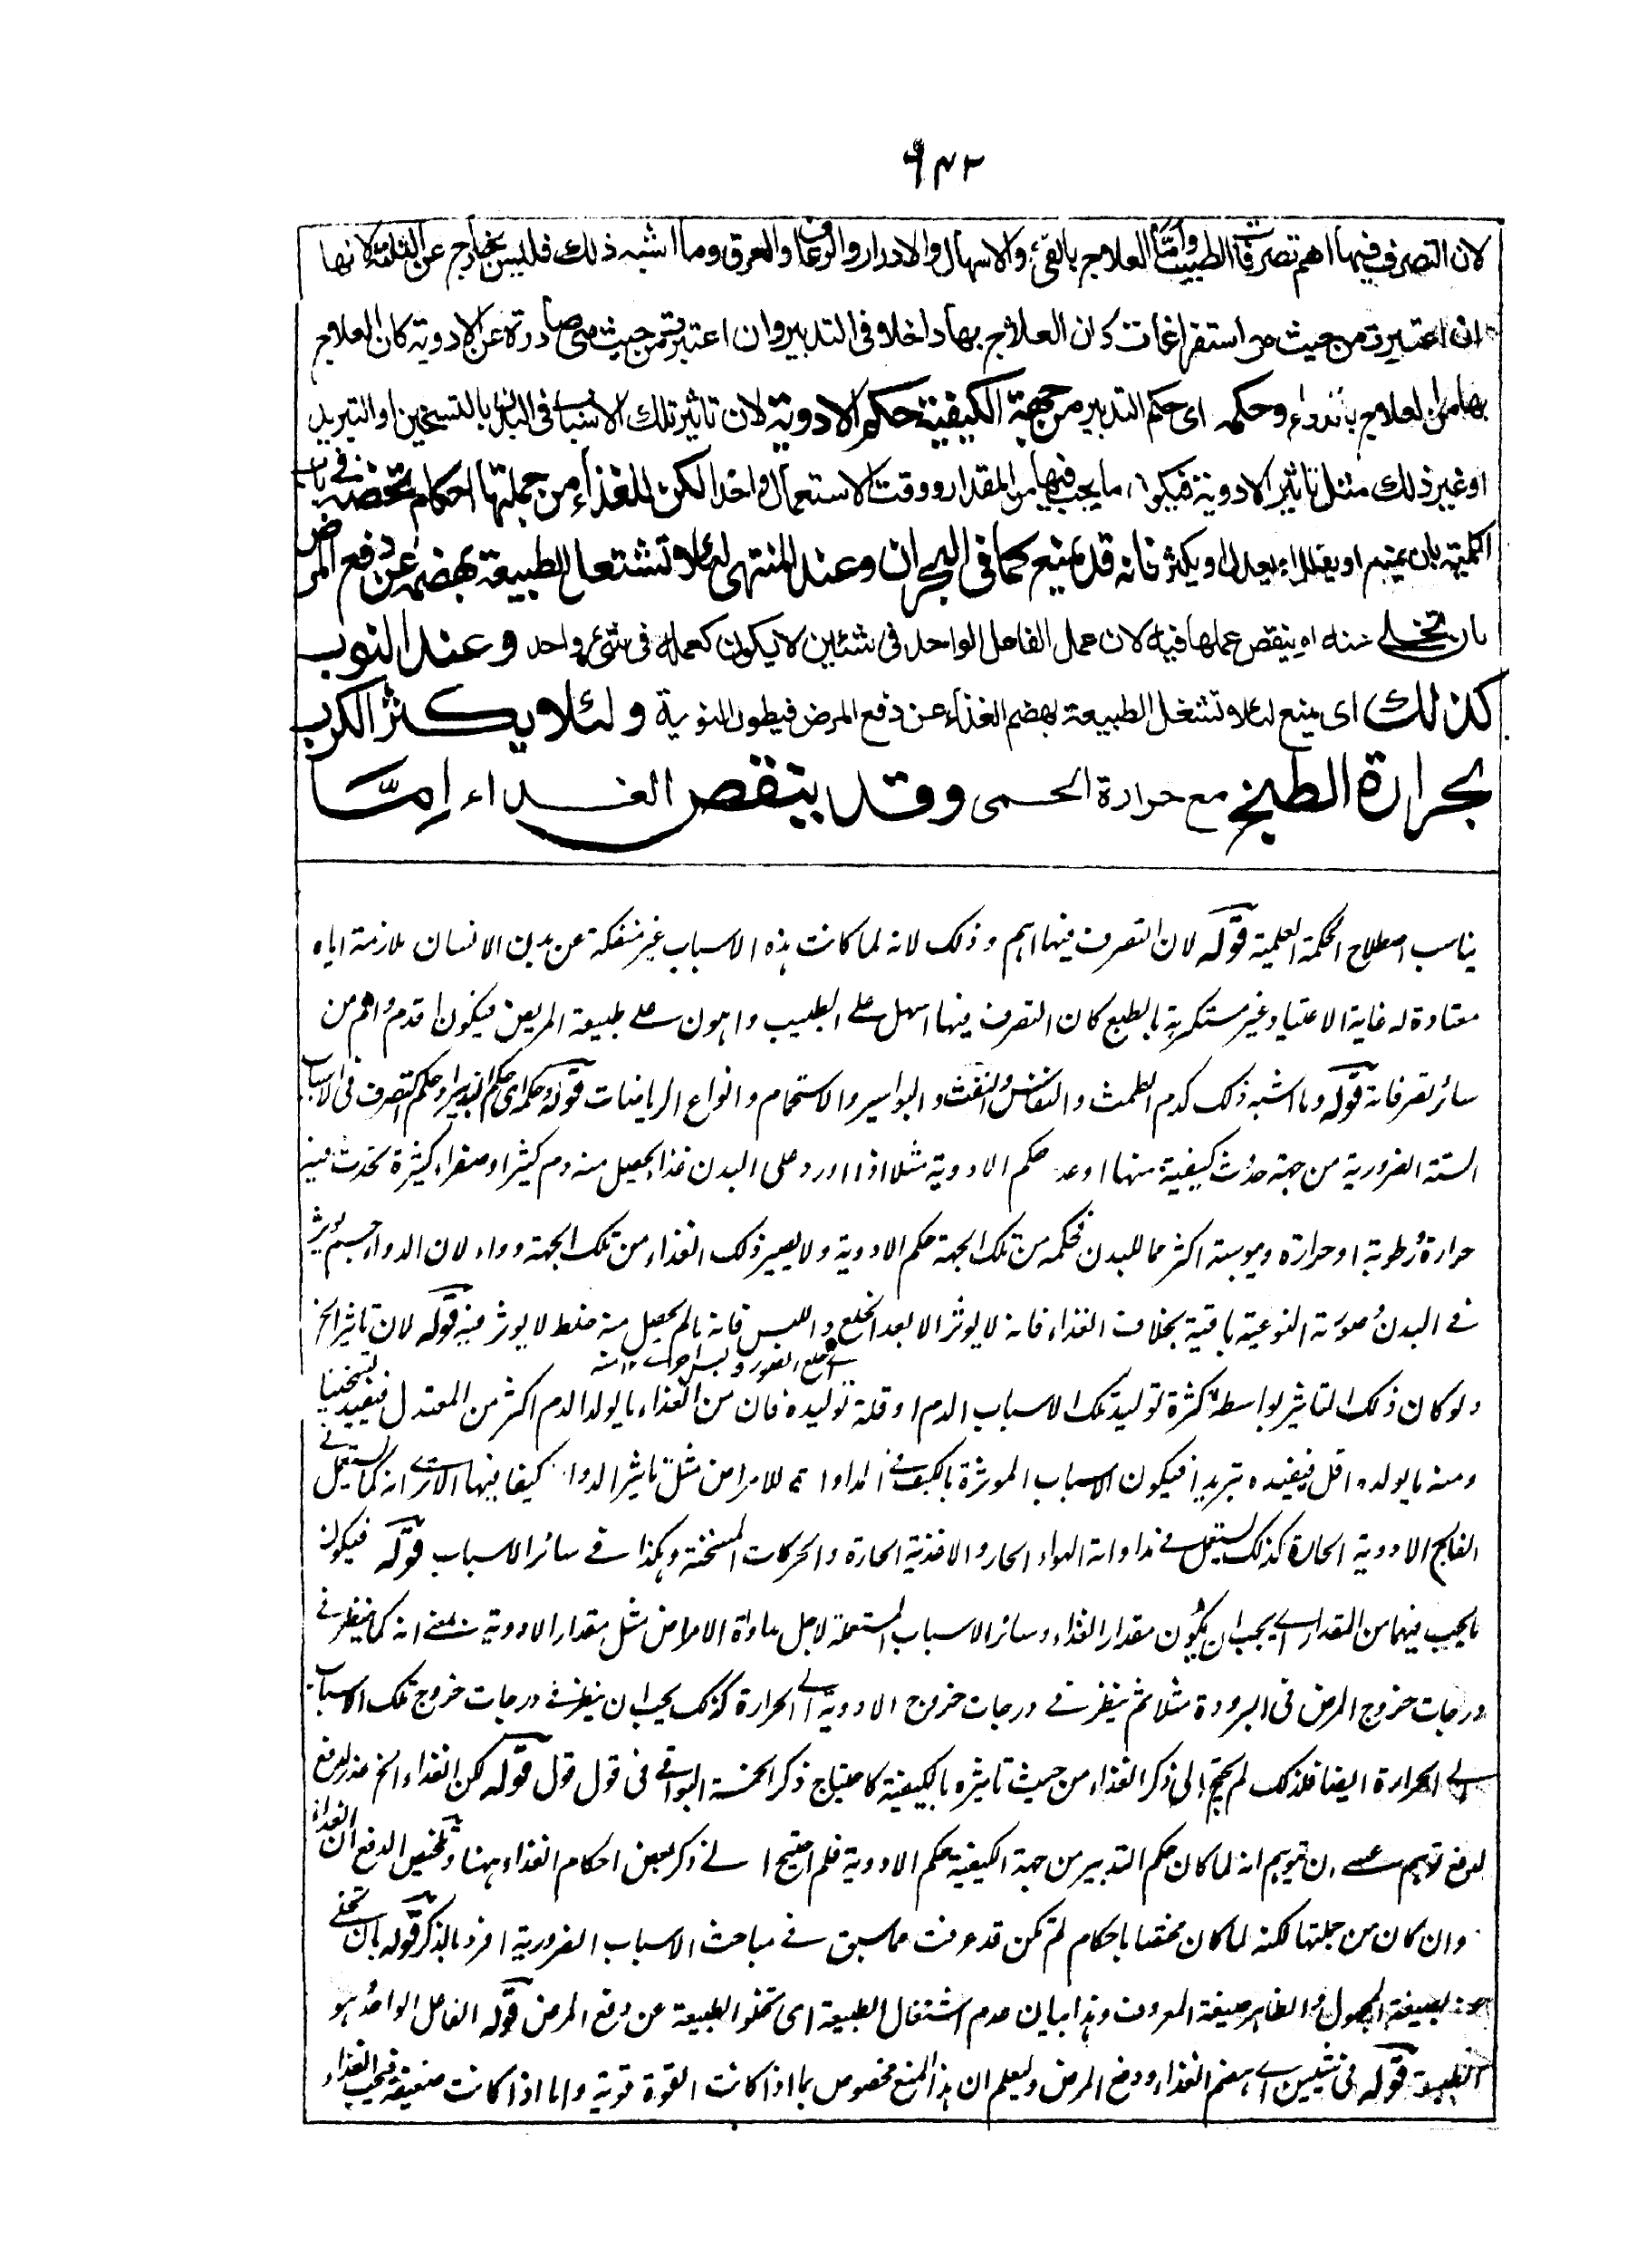 ٩٣٢
لان التصرف فيها اهم تصرفات الطبيب واما العلاج بالقئ والاسهال والادرار والرعاف والعرق وما اشبه ذلك فليس بخارج عن الثلثة لانها
ان اعتبرت من حيث هى استفراغات كان العلاج بها داخلا فى التدبير وان اعتبرت من حيث هى صادرة عن الادوية كان العلاج
بها من العلاج بالدواء وحكمه اى حكم التدبير من جهة الكيفية حكم الادوية لان تاثير تلك الاسباب فى البدن بالتسخين او التبريد
او غير ذلك مثل تاثير الادوية فيكون ما يجب فيها من المقدار ووقت الاستعمال واحدا لكن للغذاء من جملتها احكام تخصه فى باب
الكمية بان يمنع او يقلل او يعدل او يكثر فانه قد يمنع كما فى البحران وعند المنتهى لئلا تشتغل الطبيعة بهضمه عن دفع المرض
بان تخلى عنه او ينقص عملها فيه لان عمل الفاعل الواحد فى شئين لا يكون كعمله فى شئ واحد وعند النوب
كذلك اى يمنع لئلا تشتغل الطبيعة بهضم الغذاء عن دفع المرض فيطول النوبة ولئلا يكثر الكرب
بحرارة الطبخ مع حرارة الحمى وقد ينقص الغذاء امَّا
يناسب اصطلاح الحكمة العلمية قوله لان التصرف فيها اهم وذلك لانه لما كانت هذه الاسباب غير منفكة عن بدن الانسان ملازمة اياه
معتادة له غاية الاعتياد وغير مستكرهة بالطبع كان التصرف فيها اسهل على الطبيب واهون على طبيعة المريض فيكون اقدم واهم من
سائر تصرفاته قوله وما اشبه ذلك كدم الطمث والنفاس والنفث والبواسير والاستحمام وانواع الرياضات قوله وحكمه اى حكم التدبير او حكم التصرف فى الاسباب
الستة الضرورية من جهة حدوث كيفية منها حكم الادوية مثلا اذا ورد على البدن غذا يحصل منه دم كثير او صفراء كثيرة تحدث فيه
حرارة رطوبة او حرارة ويبوسة اكثر مما للبدن فحكمه من تلك الجهة حكم الادوية ولا يصير ذلك الغذاء من تلك الجهة دواء لان الدواء جسم يؤثر
فى البدن وصورته النوعية باقية بخلاف الغذاء فانه لا يوثر الا بعد الخلع واللبس فانه مالم يحصل منه خلط لا يوثر فيه قوله لان تاثير الخ
اى خلع الصورة ولبس اخرى ١٢ منه
ولو كان ذلك التاثير بواسطة كثرة توليد تلك الاسباب الدم او قلة توليده فان من الغذاء ما يولد الدم اكثر من المعتدل فيفيد تسخينا
ومنه ما يولده اقل فيفيده تبريدا فيكون الاسباب الموثرة بالكيف فى المداواة للامراض مثل تاثير الدواء كيفا فيها الا ترى انه كما يستعمل فى
الفالج الادوية الحارة كذلك يستعمل فى مداواته الهواء الحار والاغذية الحارة والحركات المسخنة وهكذا فى سائر الاسباب قوله فيكون
ما يجب فيها من المقدار اى يجب ان يكون مقدار الغذاء وسائر الاسباب المستعملة لاجل مداواة الامراض مثل مقدار الادوية يعنى انه كما ينظر فى
درجات خروج المرض فى البرودة مثلا ثم ينظر فى درجات خروج الادوية الى الحرارة كذلك يجب ان ينظر فى درجات خروج تلك الاسباب
الى الحرارة ايضا فلذلك لم يحتج الى ذكر الغذاء من حيث تاثيره بالكيفية كاحتياج ذكر الخمسة البواقى فى قول قول قوله لكن الغذاء الخ
لدفع توهم عسى ان يتوهم انه لما كان حكم التدبير من جهة الكيفية حكم الادوية فلم احتيج الى ذكر بعض احكام الغذاء ههنا وتلخيص الدفع ان الغذاء
وان كان من جملتها لكنه لما كان مختصا باحكام لم تكن قد عرفت مما سبق فى مباحث الاسباب الضرورية افرد بالذكر قوله بان تخلى
عنه بصيغة المجهول والظاهر صيغة المعروف وهذا بيان عدم اشتغال الطبيعة اى تخلو الطبيعة عن دفع المرض قوله الفاعل الواحد هو
الطبيعة قوله فى شيئين اى هضم الغذاء ودفع المرض وليعلم ان هذا المنع مخصوص بما اذا كانت القوة قوية واما اذا كانت ضعيفة فيجب الغذاء